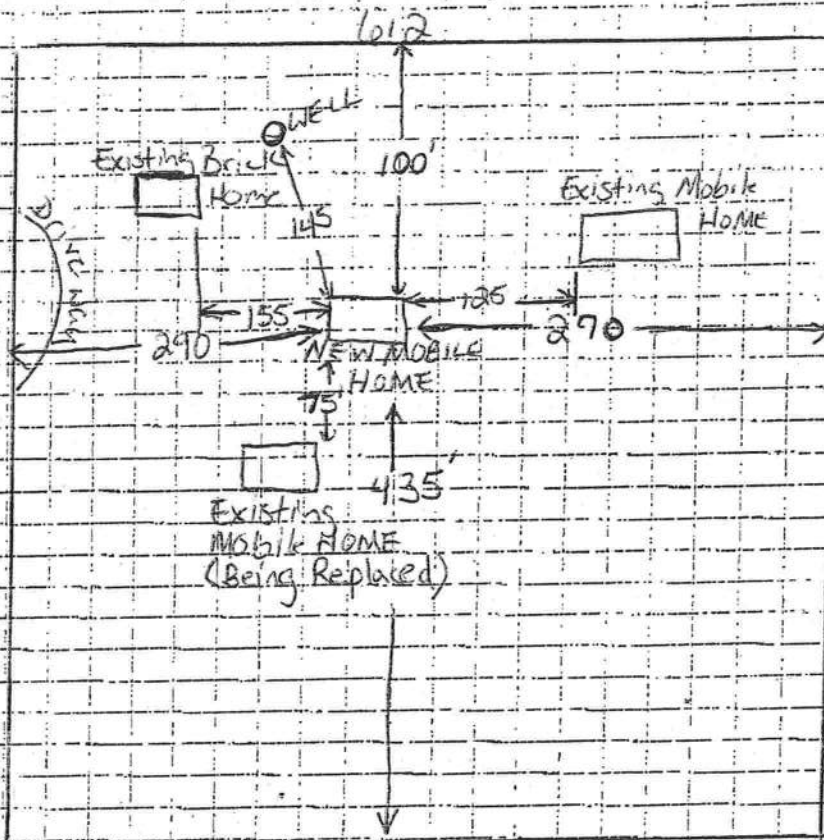 612
WELL
Existing Brick
Home
100'
Existing Mobile
HOME
145
DRIVE WAY
155
125
290
270
NEW MOBILE
HOME
75'
435'
Existing
Mobile HOME
(Being Replaced)